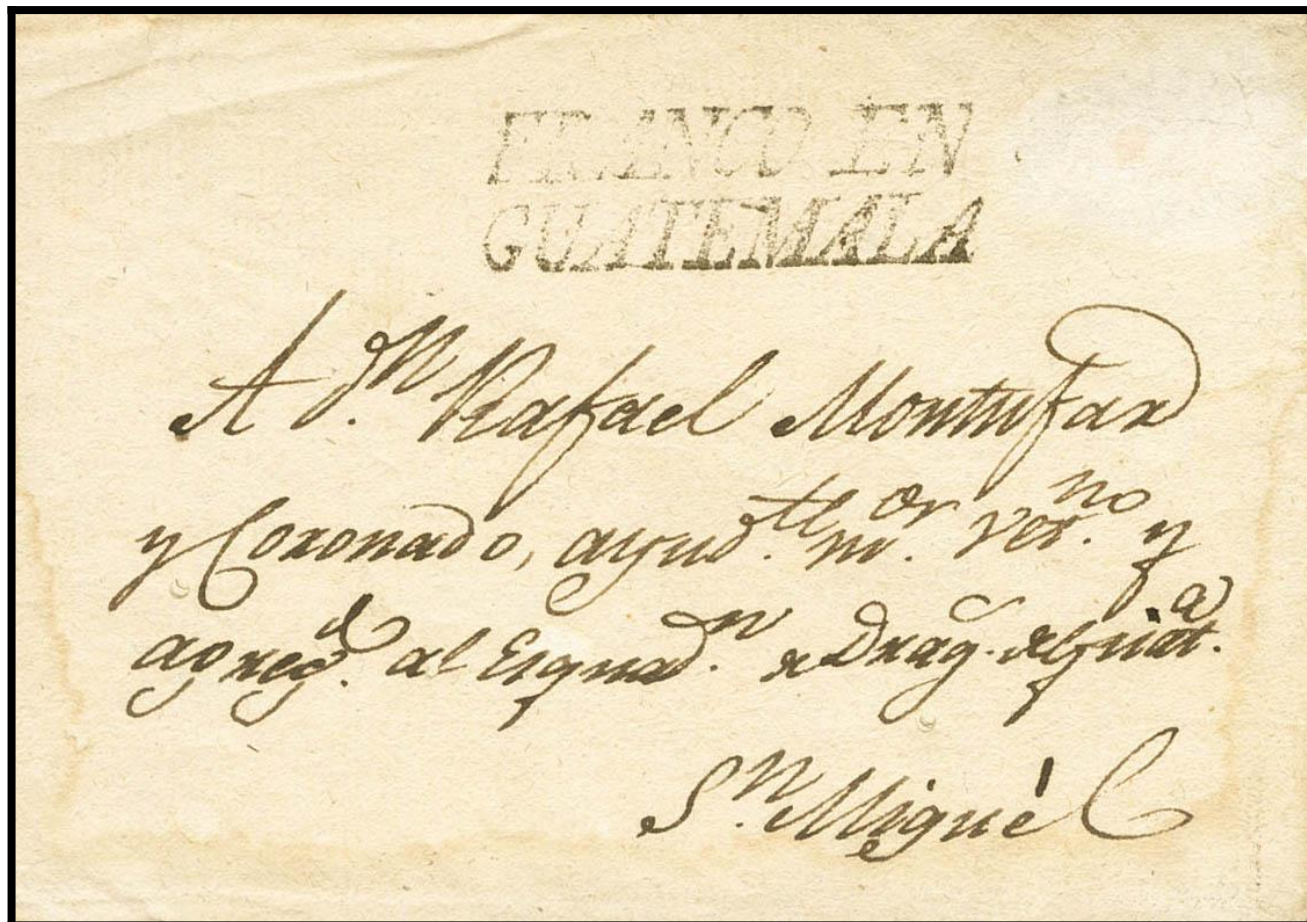 FRANCO. EN
GUATEMALA
A D.n Rafael Montufar
y Coronado, ayud.te m.or vet.no y
agreg.d al Esquad.n de Drag.s de Guat.a
S.n Miguèl